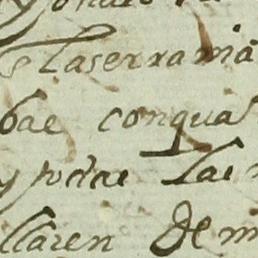 s Laserrania
bae conqua
y podae Las
llaren De m